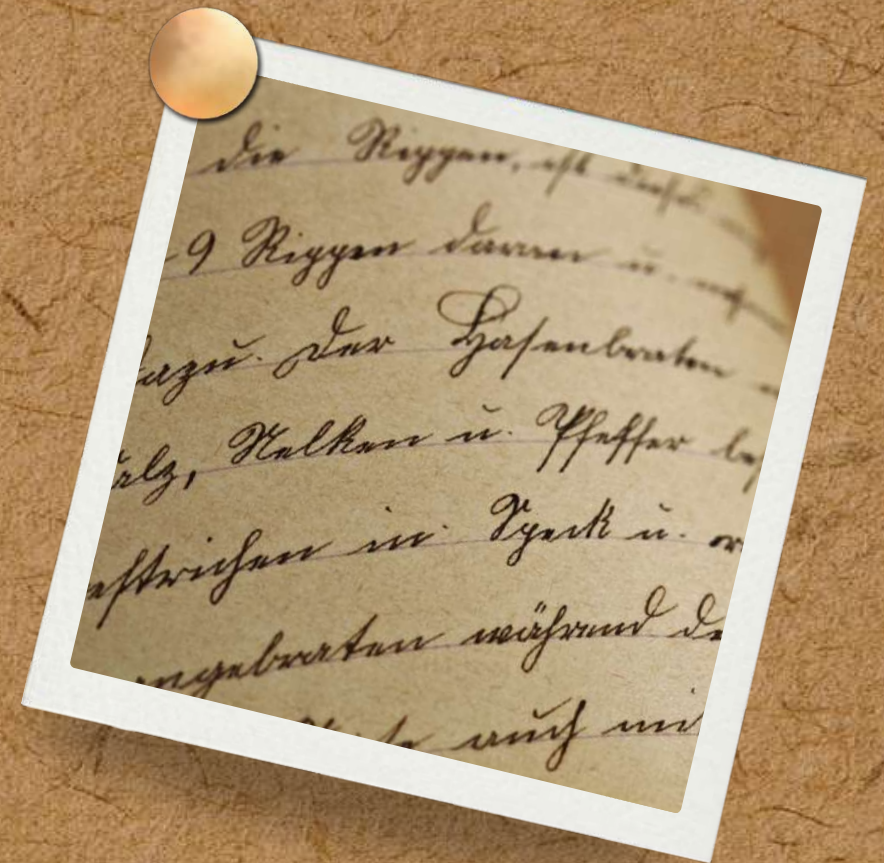 die Rippen, ist
9 Rippen daran u.
dazu. Der Hasenbraten
Salz, Nelken u. Pfeffer
estrichen in Speck u.
angebraten während
auch